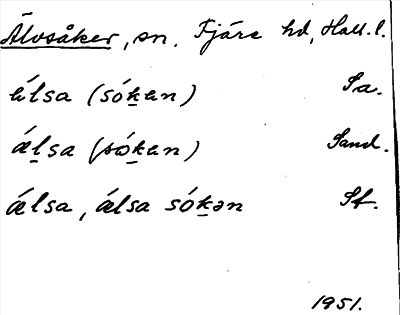 Älvsåker, sn. Fjäre hd, Hall. l.
ä́lsa (só̱ken) Sa.
ǽḻsa (só̱ken) Sand.
ǽlsa, ǽlsa sóḵən Sf.
1951.